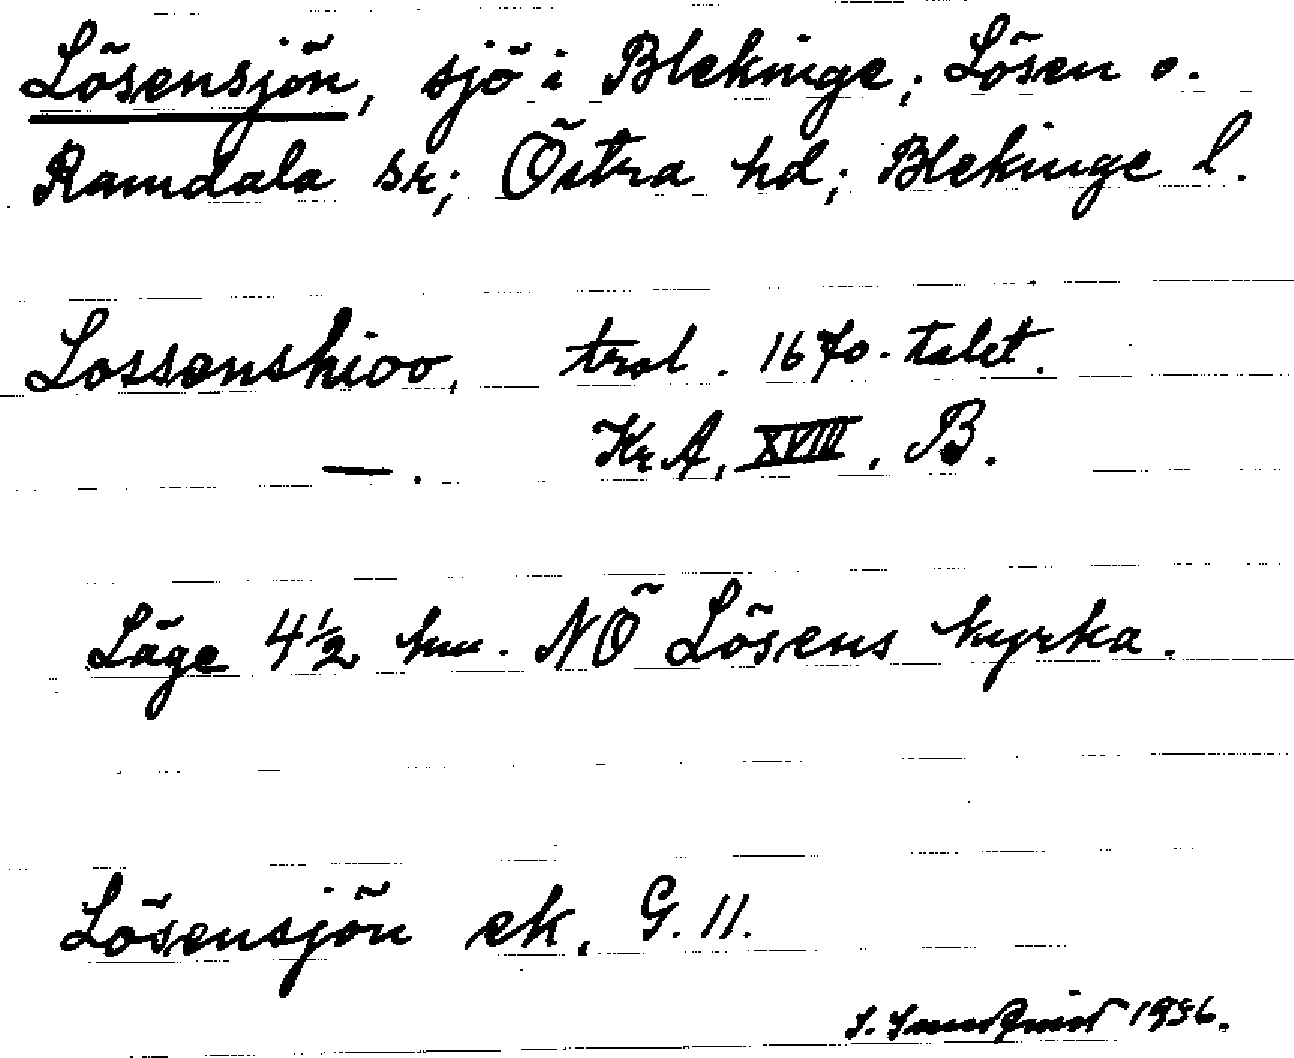 Lösensjön, sjö i Blekinge; Lösen o.
Ramdala sr; Östra hd; Blekinge l.
Lossenshioo, trol. 1670-talet.
—. Kr.A, XVIII, B.
Läge 4½ km. NÖ Lösens kyrka.
Lösensjön ek. G. 11.
1936.